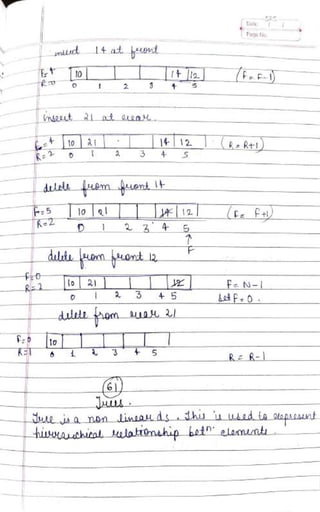 Date
Page No.
insert 14 at front
F=4 10 14 12 (F=F-1)
R=0 0 1 2 3 4 5
insert 21 at rear.
F=4 10 21 14 12 (R=R+1)
R=2 0 1 2 3 4 5
delete from front 14
F=5 10 21 14 12 (F=F+1)
R=2 0 1 2 3 4 5
↑
F
delete from front 12
F=0
R=2 10 21 12 F=N-1
0 1 2 3 4 5 Let F=0.
delete from rear 21
F=0 10
R=1 0 1 2 3 4 5
R=R-1
61
Trees.
Tree is a non linear ds. This is used to represent
hierarchical relationship betn elements.